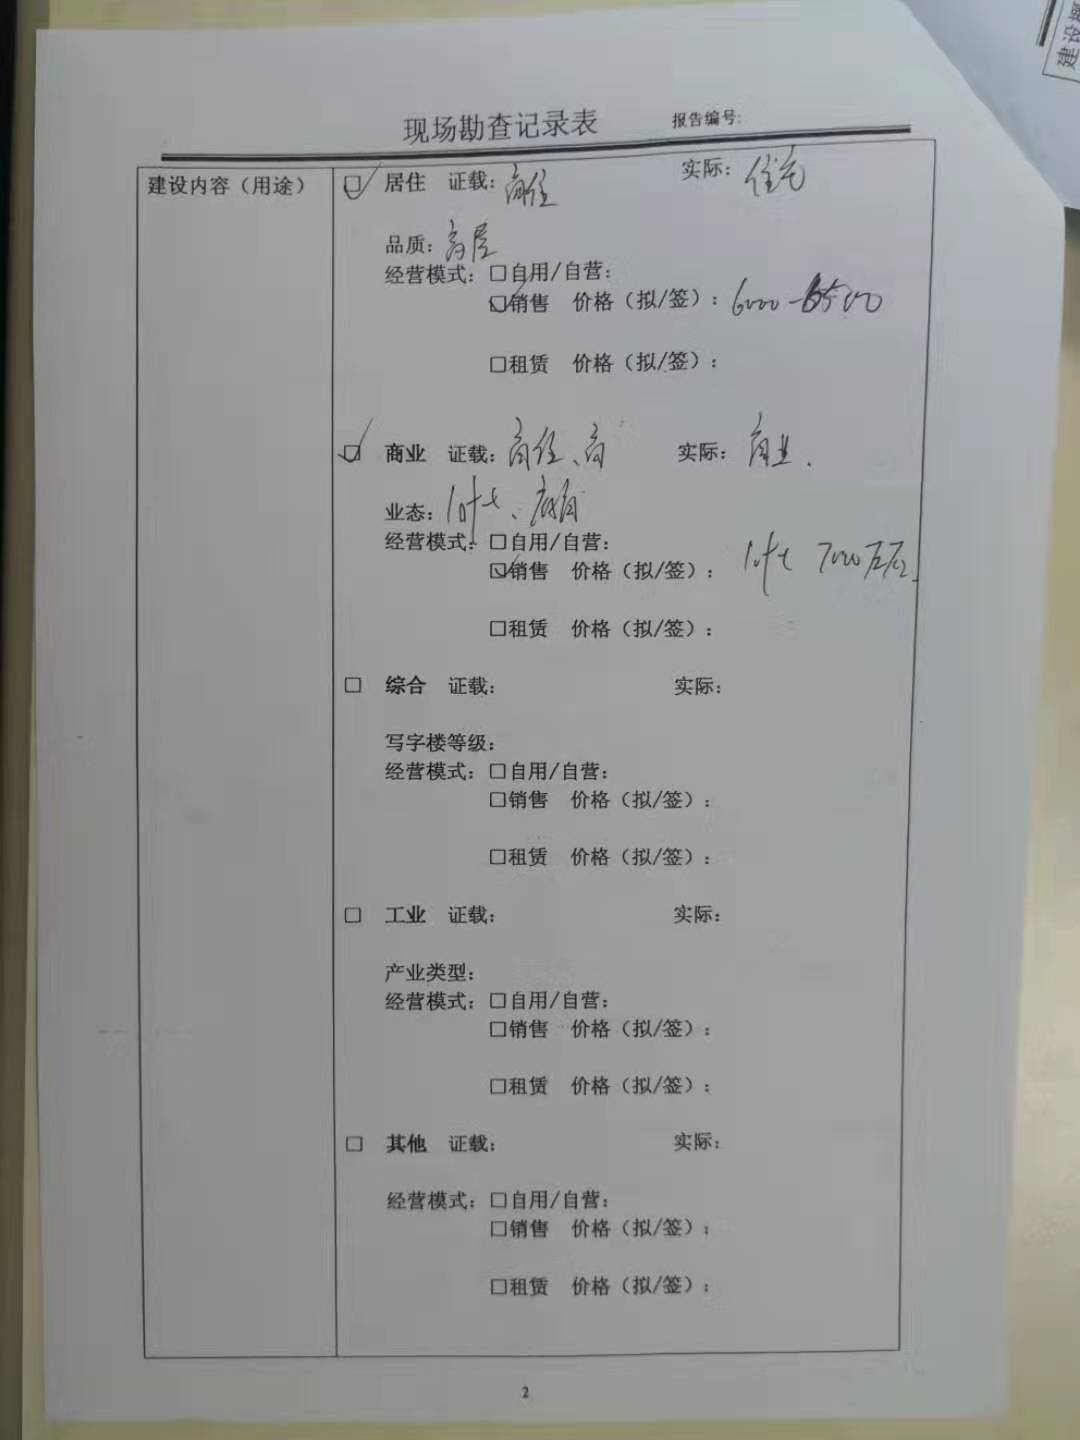 现场勘查记录表 报告编号:
建设内容（用途）
☑ 居住 证载: 商住 实际: 住宅
品质: 高层
经营模式: □自用/自营:
☑销售 价格（拟/签）: 6000-6500
□租赁 价格（拟/签）:
☑ 商业 证载: 商住、商 实际: 商业.
业态: loft、
经营模式: □自用/自营:
☑销售 价格（拟/签）: loft 7000左右.
□租赁 价格（拟/签）:
□ 综合 证载: 实际:
写字楼等级:
经营模式: □自用/自营:
□销售 价格（拟/签）:
□租赁 价格（拟/签）:
□ 工业 证载: 实际:
产业类型:
经营模式: □自用/自营:
□销售 价格（拟/签）:
□租赁 价格（拟/签）:
□ 其他 证载: 实际:
经营模式: □自用/自营:
□销售 价格（拟/签）:
□租赁 价格（拟/签）:
2
建设